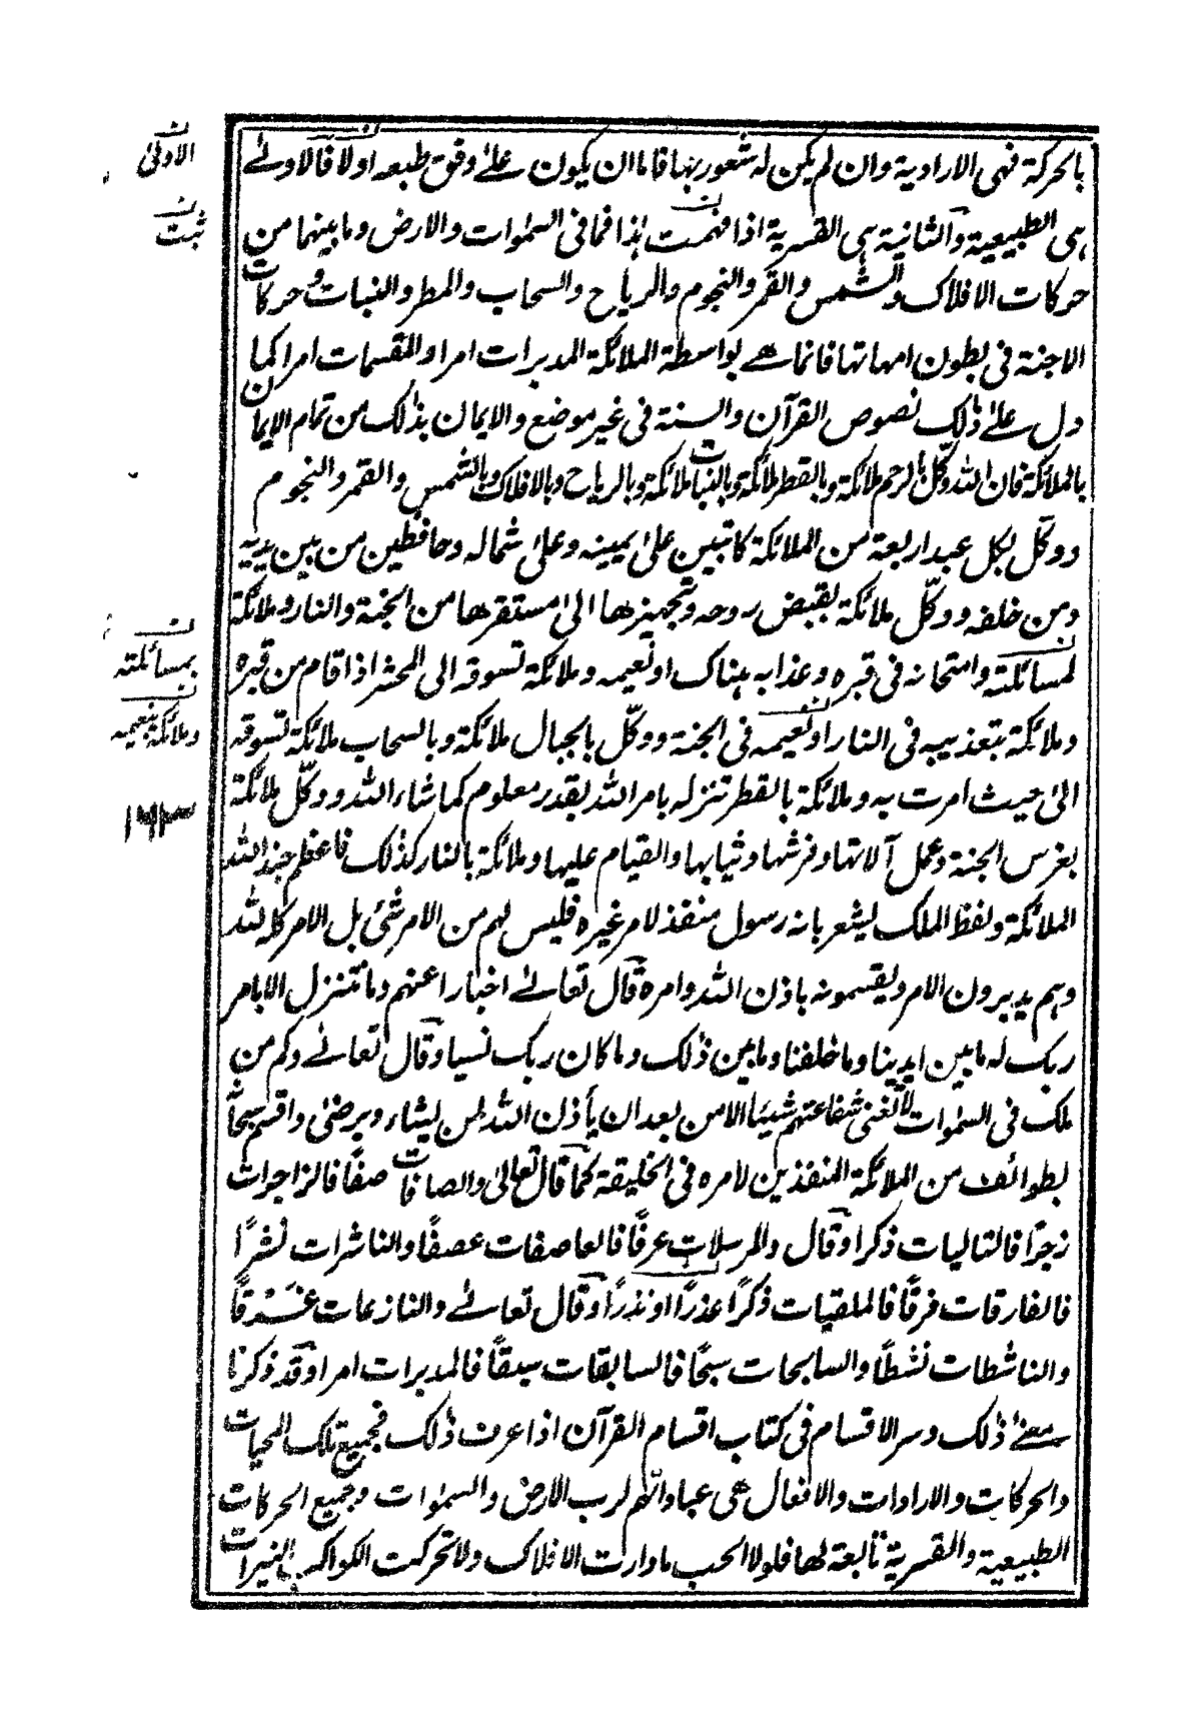 بالحركة فهى الارادية وان لم يكن له شعور بها فاما ان يكون على وفق طبعه اولا فالاولى
هى الطبيعية والثانية هى القسرية اذا فهمت هذا فما فى السموات والارض وما بينهما من
حركات الافلاك والشمس والقمر والنجوم والرياح والسحاب والمطر والنبات وحركات
الاجنة فى بطون امهاتها فانما هى بواسطة الملائكة المدبرات امرا والمقسمات امرا كما
دل على ذلك نصوص القرآن والسنة فى غير موضع والايمان بذلك من تمام الايمان
بالملائكة فان الله وكل بالرحم ملائكة وبالقطر ملائكة وبالنبات ملائكة وبالرياح وبالافلاك وبالشمس والقمر والنجوم
ووكّل بكل عبد اربعة من الملائكة كاتبين على يمينه وعلى شماله وحافظين من بين يديه
ومن خلفه ووكّل ملائكة بقبض روحه وتجهيزها الى مستقرها من الجنة والنار وملائكة
لمسائلته وامتحانه فى قبره وعذابه هناك او نعيمه وملائكة تسوقه الى المحشر اذا قام من قبره
وملائكة بتعذيبه فى النار او نعيمه فى الجنة ووكّل بالجبال ملائكة وبالسحاب ملائكة تسوقه
الى حيث امرت به وملائكة بالقطر تنزله بامر الله بقدر معلوم كما شاء الله ووكّل ملائكة
بغرس الجنة وعمل آلاتها وفرشها وثيابها والقيام عليها وملائكة بالنار كذلك فاعظم جند الله
الملائكة ولفظ الملك يشعر بانه رسول منفذ لامر غيره فليس لهم من الامر شئ بل الامر كله لله
وهم يدبرون الامر ويقسمونه باذن الله وامره قال تعالى اخبارا عنهم وما نتنزل الا بامر
ربك له ما بين ايدينا وما خلفنا وما بين ذلك وما كان ربك نسيا وقال تعالى وكم من
ملك فى السموات لا تغنى شفاعتهم شيئا الا من بعد ان يأذن الله لمن يشاء ويرضى واقسم سبحانه
بطوائف من الملائكة المنفذين لامره فى الخليقة كما قال تعالى والصافات صفًا فالزاجرات
زجرًا فالتاليات ذكرا وقال والمرسلات عرفًا فالعاصفات عصفًا والناشرات نشرًا
فالفارقات فرقًا فالملقيات ذكرًا عذرًا او نذرًا وقال تعالى والنازعات غَرْقًا
والناشطات نشطًا والسابحات سبحًا فالسابقات سبقًا فالمدبرات امرا وقد ذكرنا
معنى ذلك وسر الاقسام فى كتاب اقسام القرآن اذا عرف ذلك فجميع تلك المحبات
والحركات والارادات والافعال هى عبادتهم لرب الارض والسموات وجميع الحركات
الطبيعية والقسرية تابعة لها فلولا الحب ما دارت الافلاك ولا تحركت الكواكب النيرات
ن
الاولى
ن
ثبت
ن
بمسائلته
ن
وملائكة بنعيمه
١٦٣